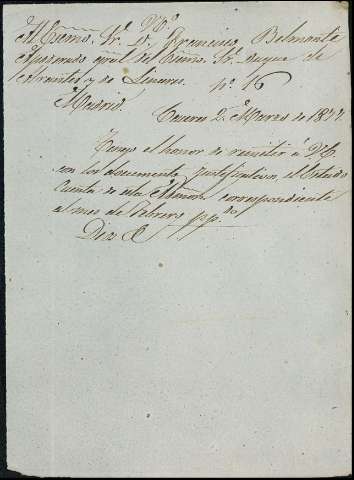 Al Exmo. Sr. Dn. Francisco Belmonte
Apoderado gral. del Exmo. Sr. Duque de
Abrantes y de Linares. nº. 16
Madrid.
2. Marzo de 1877.
Tengo el honor de remitir á V. E.
con los documentos justificativos, el Estado
Cuenta de esta Admon. correspondiente
al mes de Febrero pp.do
Dios &